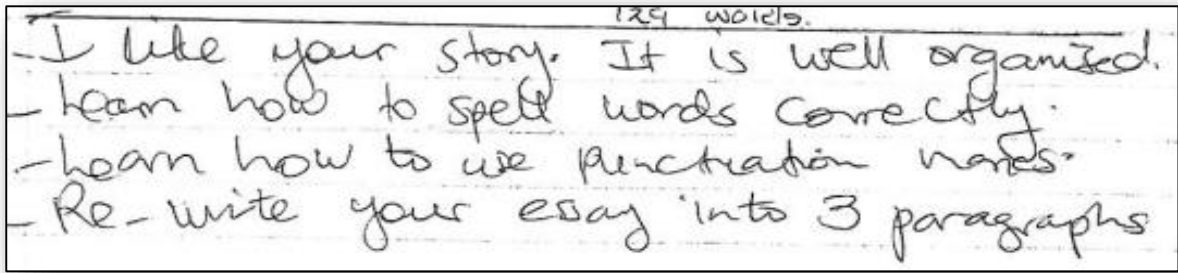 129 words.
- I like your story. It is well organised.
- Learn how to spell words correctly.
- Learn how to use punctuation marks.
- Re-write your essay into 3 paragraphs